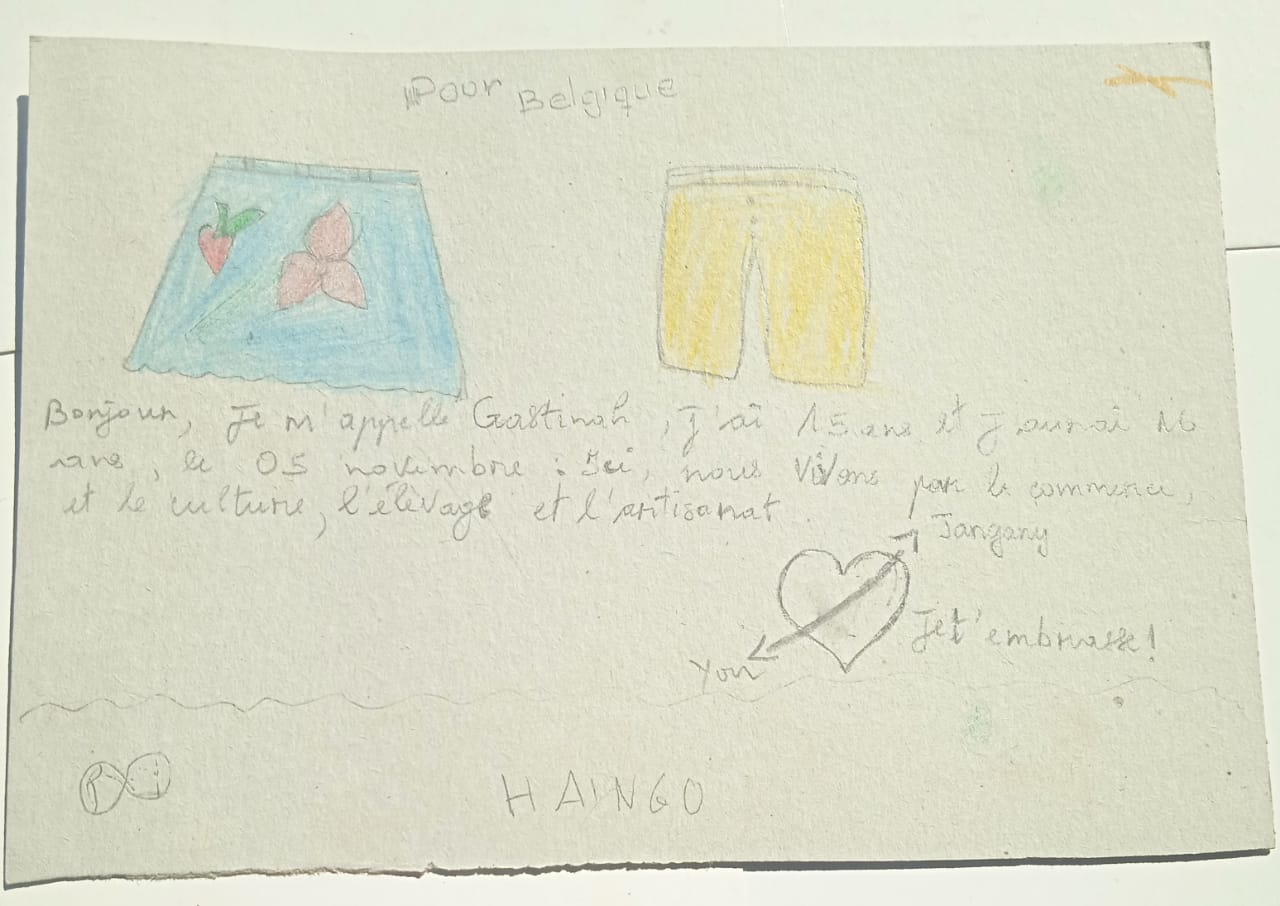 Pour Belgique
Bonjour, Je m'appelle Gastinah, J'ai 15 ans et J'aurai 16
ans, le 05 novembre : Ici, nous Vivons par le commerce,
et le culture, l'élevage et l'artisanat.
Jangany
Je t'embrasse!
You
HAINGO